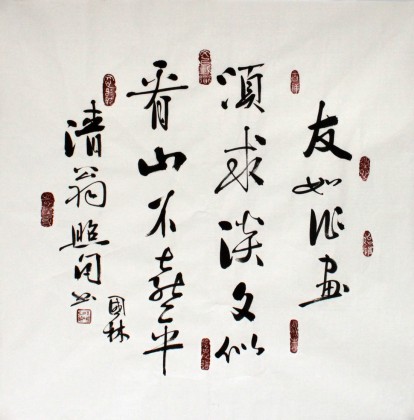 友如作画
須求淡文似
看山不喜平
清翁照
國林